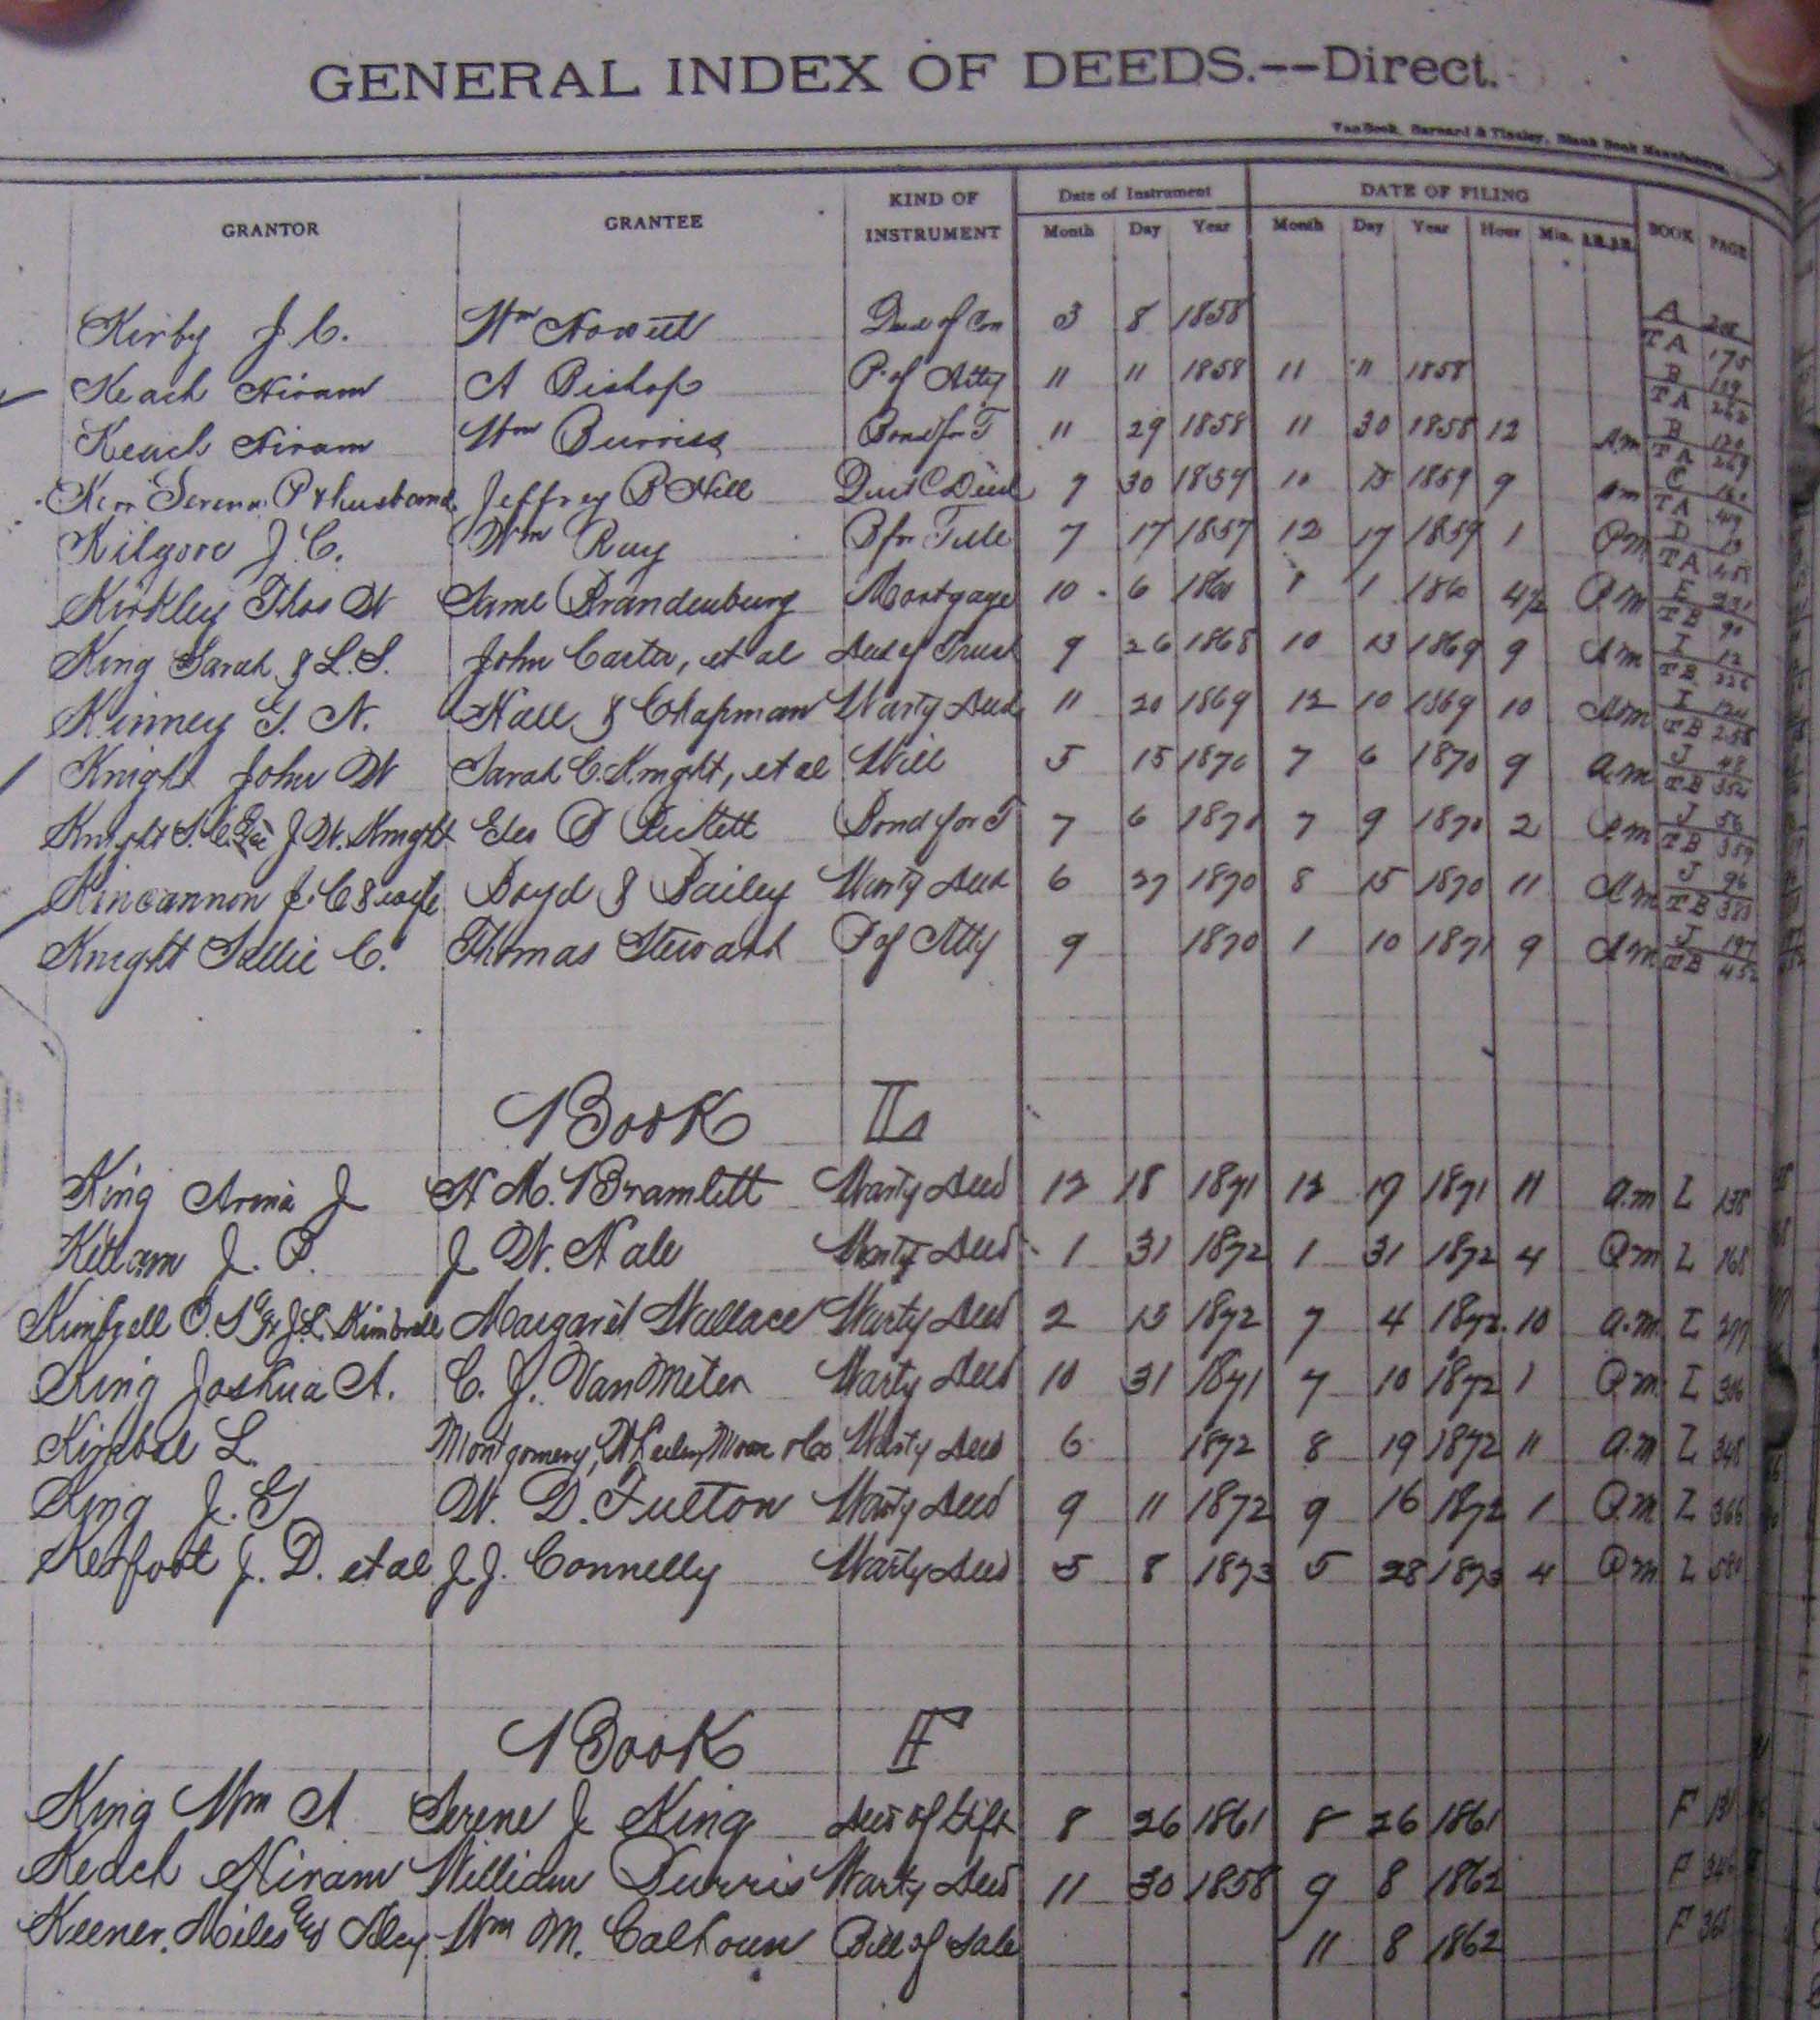 GENERAL INDEX OF DEEDS.--Direct.
VanBook, Barnard & Tinsley, Blank Book Manufacturers
GRANTOR GRANTEE KIND OF INSTRUMENT Date of Instrument DATE OF FILING BOOK PAGE
Month Day Year Month Day Year Hour Min.
Kirby J. C. Wm Howell Deed of Con 3 8 1858 A
TA 175
Keach Hiram A Bishop P. of Atty 11 11 1858 11 11 1858 B 159
TA 262
Keach Hiram Wm Burriss Bond for T 11 29 1858 11 30 1858 12 Am B 120
TA 269
Kerr Serena P & husband Jeffrey B Hill Quit C Deed 9 30 1859 10 15 1859 9 am C 160
TA 419
Kilgore J. C. Wm Ray B for Title 7 17 1857 12 17 1859 1 Pm D 19
TA 458
Kirkley Thos W Saml Brandenburg Mortgage 10 6 1860 1 1 1860 4½ P.m E 291
TB 90
King Sarah & L. S. John Carter, et al Deed of Trust 9 26 1868 10 13 1869 9 Am I 12
TB 226
Kinney G. N. Hall & Chapman Warty Deed 11 20 1869 12 10 1869 10 Am I 124
TB 258
Knight John W Sarah C. Knight, et al Will 5 15 1870 7 6 1870 9 a.m J 48
TB 354
Knight S. C. Exc J. W. Knight Geo B Pickett Bond for T 7 6 1870 7 9 1870 2 J 56
TB 359
Kincannon J. C & wife Boyd & Bailey Warty Deed 6 27 1870 8 15 1870 11 Am J 96
TB 383
Knight Sallie C. Thomas Stewart P of Atty 9 1870 1 10 1871 9 Am J 197
TB 452
Book L
King Arena J H. M. Bramlett Warty Deed 12 18 1871 12 19 1871 11 a.m L 138
Killam J. P. J. W. Hale Warty Deed 1 31 1872 1 31 1872 4 P.m L 168
Kimbrell O. S & J. L. Kimbrell Margaret Wallace Warty Deed 2 13 1872 7 4 1872 10 a.m L 277
King Joshua A. C. J. VanMeter Warty Deed 10 31 1871 7 10 1872 1 P.m L 306
Kimbal L. Montgomery, Moore & Co Warty Deed 6 1872 8 19 1872 11 a.m L 348
King J. G W. D. Fulton Warty Deed 9 11 1872 9 16 1872 1 P.m L 366
Kerfoot J. D. et al J. J. Connelly Warty Deed 5 8 1873 5 28 1873 4 P.m L 580
Book F
King Wm A Serene J King Deed of Gift 8 26 1861 8 26 1861 F 131
Keach Hiram William Burris Warty Deed 11 30 1858 9 8 1862 F
Keener, Miles and Wm M. Calhoun Bill of Sale 11 8 1862 F